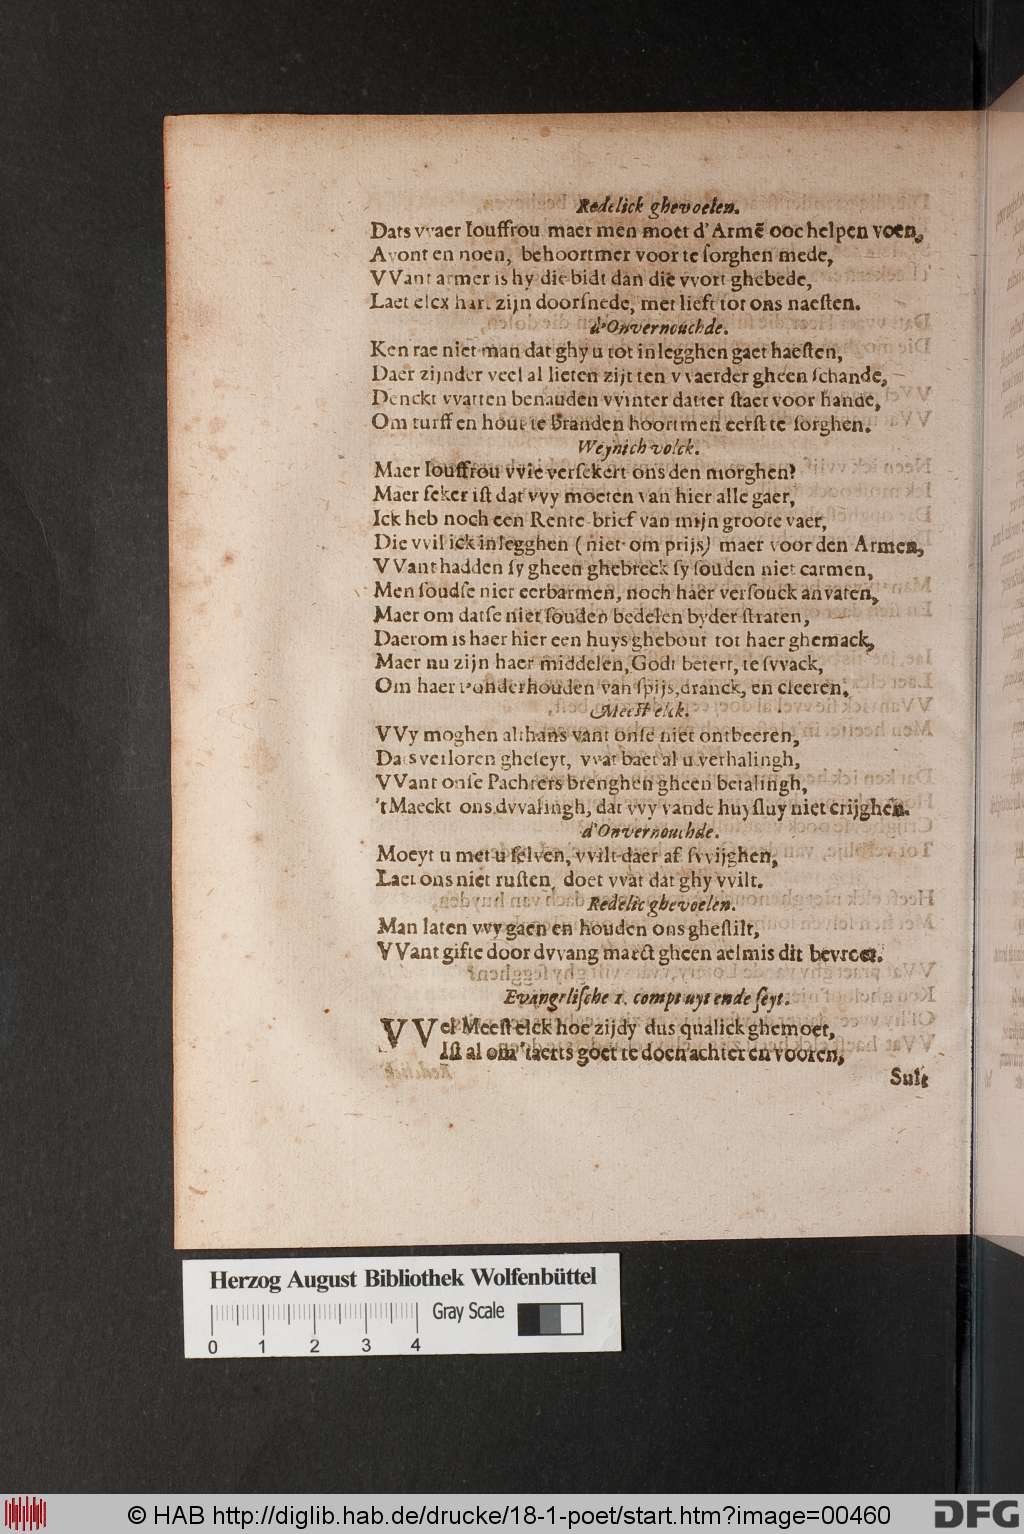 Redelick ghevoelen.
Dats vvaer Iouffrou maer men moet d'Armē ooc helpen voen,
Avont en noen, behoortmer voor te ſorghen mede,
VVant armer is hy die bidt dan die vvort ghebede,
Laet elcx hart zijn doorſnede, met lieft tot ons naeſten.
d'Onvernouchde.
Ken rae niet man dat ghy u tot inlegghen gaet haeſten,
Daer zijnder veel al lieten zijt ten vvaerder gheen ſchande,
Denckt vvatten benauden vvinter datter ſtaet voor hande,
Om turff en hout te branden hoort men eerſt te ſorghen.
Weynich volck.
Maer Iouffrou vvie verſekert ons den morghen?
Maer ſeker iſt dat vvy moeten van hier alle gaer,
Ick heb noch een Rente-brief van mijn groote vaer,
Die vvil ick inlegghen (niet om prijs) maer voor den Armen,
VVant hadden ſy gheen ghebreck ſy ſouden niet carmen,
Men ſoudſe niet eerbarmen, noch haer verſouck anvaten,
Maer om datſe niet ſouden bedelen byder ſtraten,
Daerom is haer hier een huys ghebout tot haer ghemack,
Maer nu zijn haer middelen, Godt betert, te ſvvack,
Om haer t'onderhouden van ſpijs, dranck, en cleeren.
Meeſt elck.
VVy moghen althans vant onſe niet ontbeeren,
Dats verloren gheſeyt, vvat baet al u verhalingh,
VVant onſe Pachters brenghen gheen betalingh,
't Maeckt ons dvvalingh, dat vvy vande huyſluy niet crijghen.
d'Onvernouchde.
Moeyt u met u ſelven, vvilt daer af ſvvijghen,
Laet ons niet ruſten, doet vvat dat ghy vvilt.
Redelic ghevoelen.
Man laten vvy gaen en houden ons gheſtilt,
VVant gifte door dvvang maect gheen aelmis dit bevroet.
Evangeliſche 1. compt uyt ende ſeyt.
VVel Meeſt elck hoe zijdy dus qualick ghemoet,
Iſt al om 'taerts goet te doen achter en vooren,
Sult
Herzog August Bibliothek Wolfenbüttel
Gray Scale
0 1 2 3 4
© HAB http://diglib.hab.de/drucke/18-1-poet/start.htm?image=00460
DFG